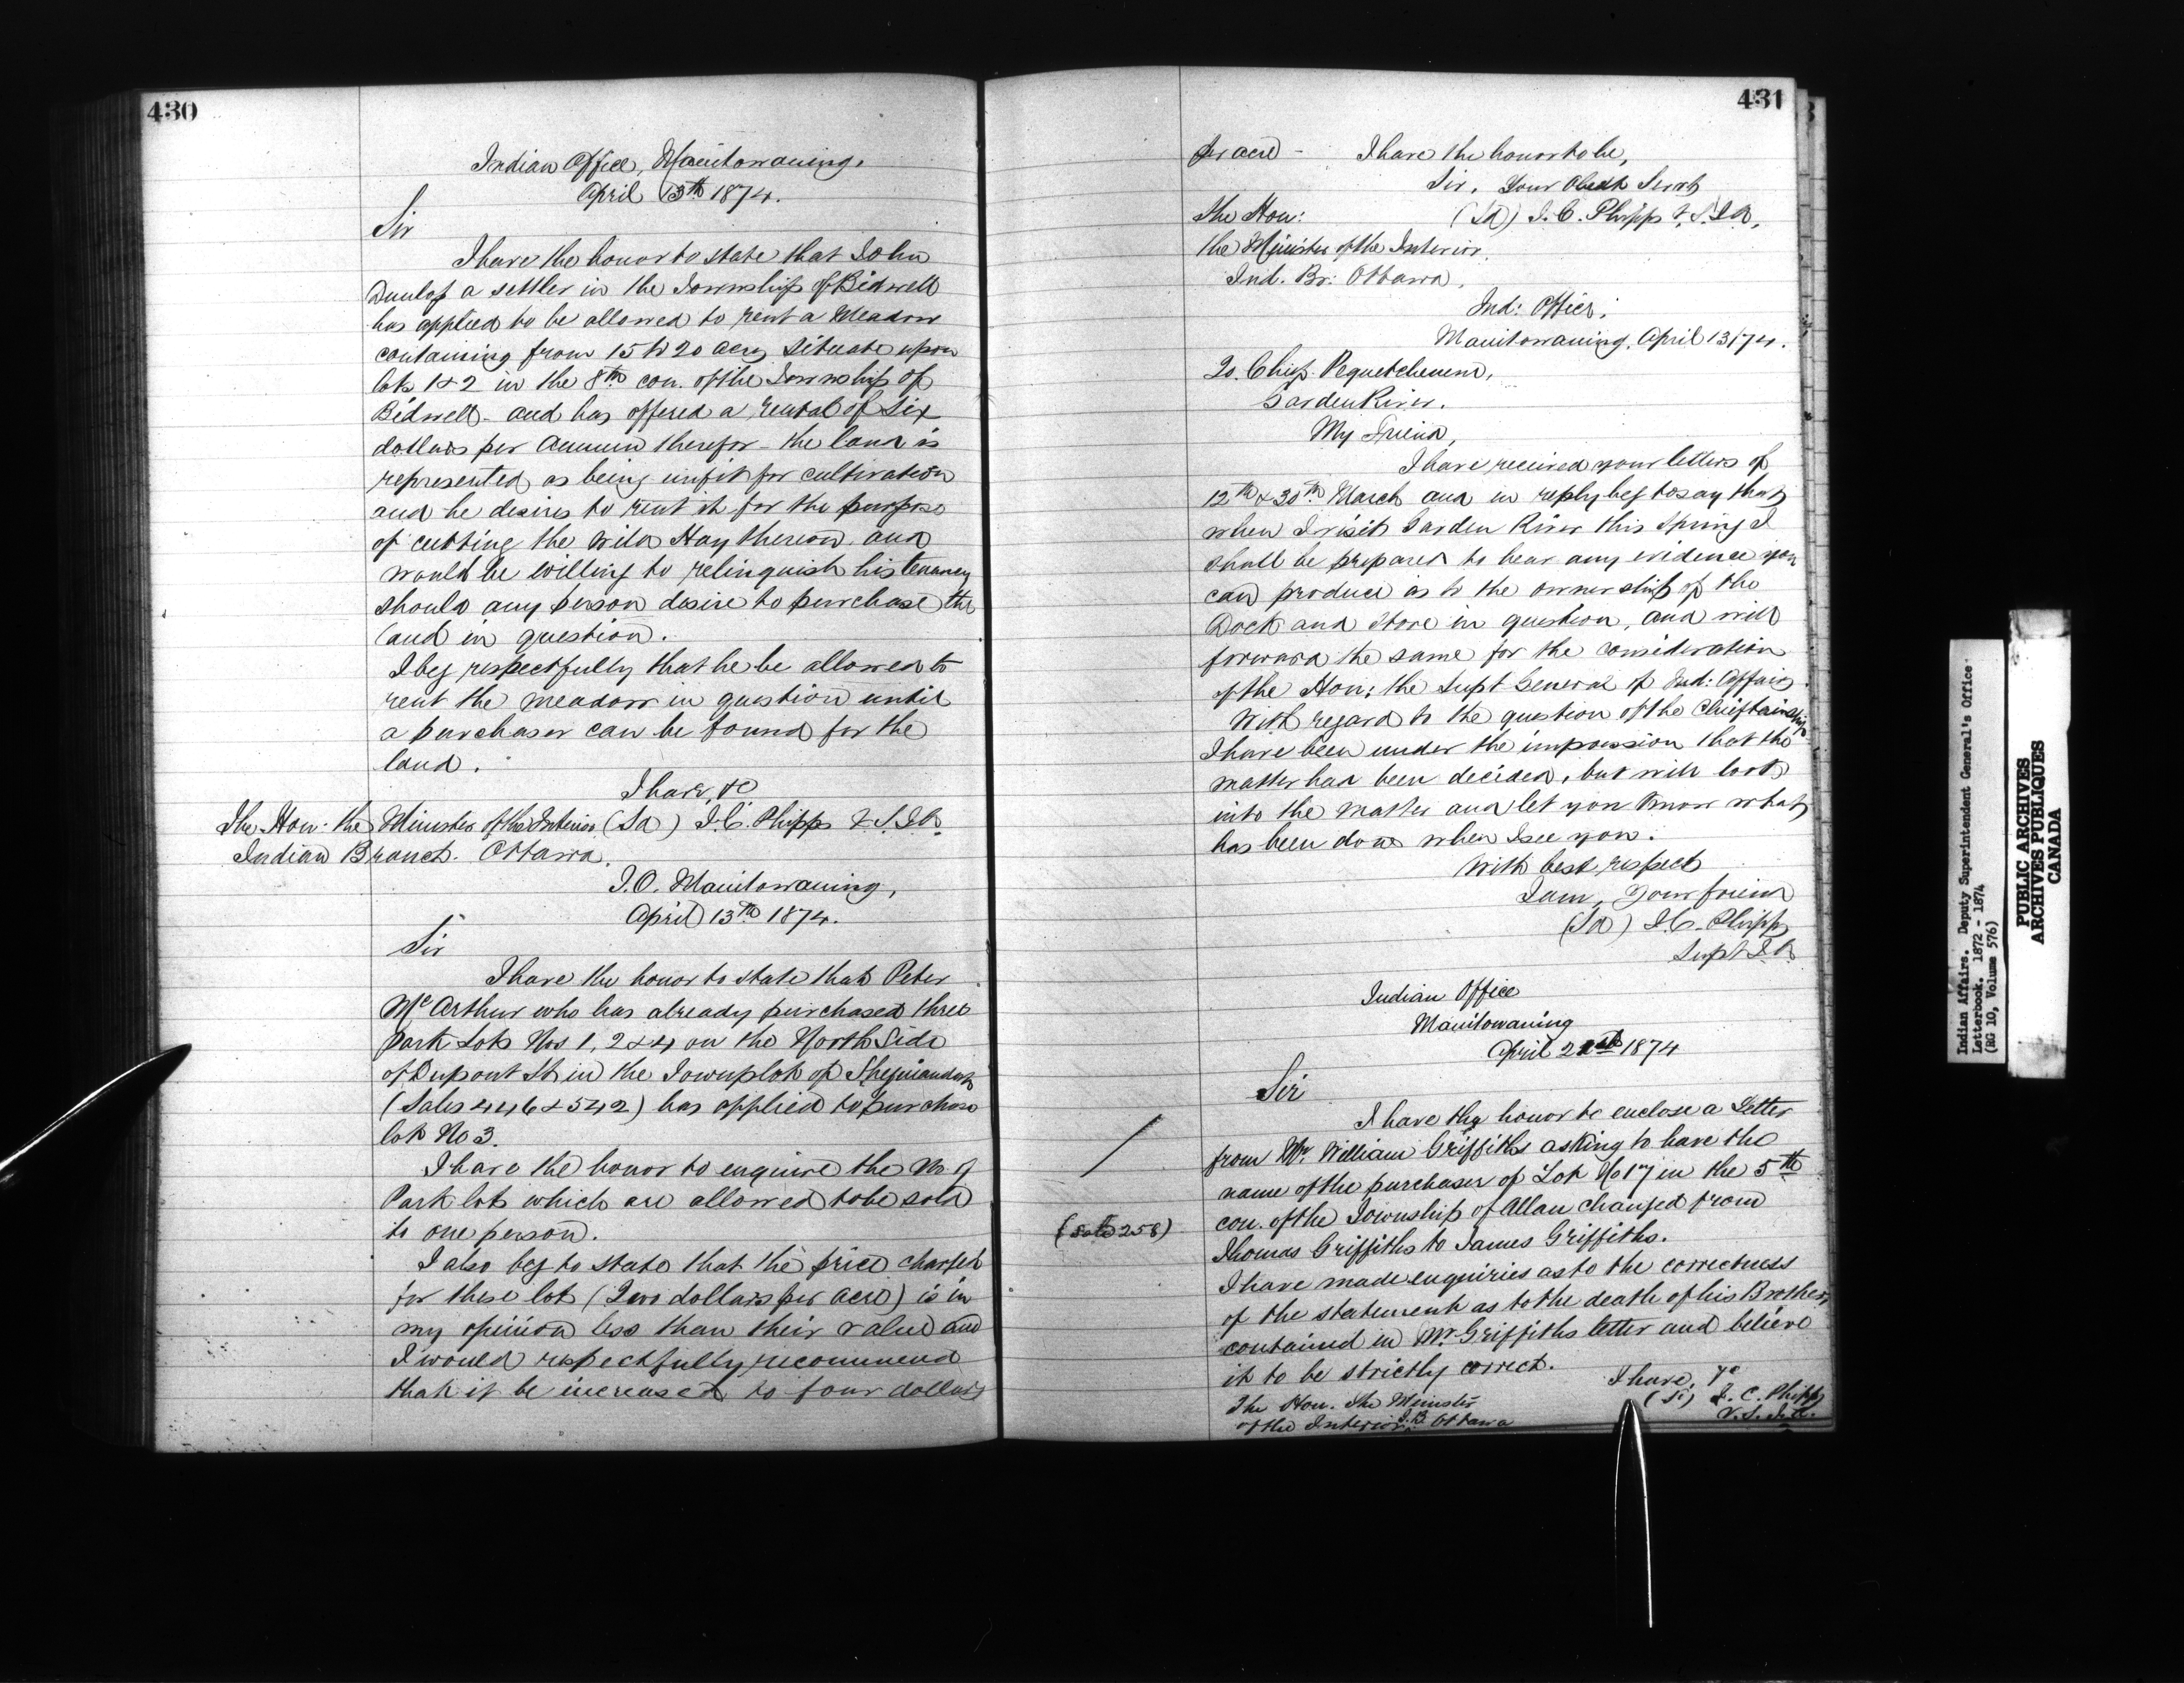 430
Indian Office, Manitowaning.
April 13th 1874.
Sir
I have the honor to state that John
Dunlop a settler in the Township of Bidwell
has applied to be allowed to rent a Meadow
containing from 15 to 20 acres situate upon
lots 1 & 2 in the 8th con. of the Township of
Bidwell and has offered a rental of six
dollars per Annum therefor - the land is
represented as being unfit for cultivation
and he desires to rent it for the purpose
of cutting the Wild Hay thereon and
would be willing to relinquish his tenancy
should any person desire to purchase the
land in question.
I beg respectfully that he be allowed to
rent the meadow in question until
a purchaser can be found for the
land.
I have, &c
The Hon: the Minister of the Interior (Sd) J.C. Phipps V.S.I.A.
Indian Branch. Ottawa.
I.O. Manitowaning,
April 13th 1874.
Sir
I have the honor to state that Peter
McArthur who has already purchased three
Park Lots Nos 1, 2 & 4 on the North Side
of Dupont St in the Townplot of Sheguiandah
(Sales 446 & 542) has applied to purchase
lot No 3.
I have the honor to enquire the No of
Park lots which are allowed to be sold
to one person.
I also beg to state that the price charged
for these lots (Two dollars per acre) is in
my opinion less than their value and
I would respectfully recommend
that it be increased to four dollars
431
per acre - I have the honor to be,
Sir, Your Obedt Servt
The Hon: (Sd) J.C. Phipps V.S.I.A.
the Minister of the Interior.
Ind. Br: Ottawa.
Ind: Office,
Manitowaning, April 13/74.
To Chief Pequetchenene,
Garden River.
My Friend,
I have received your letters of
12th & 30th March and in reply beg to say that
when I visit Garden River this Spring I
shall be prepared to hear any evidence you
can produce as to the ownership of the
Dock and Store in question, and will
forward the same for the consideration
of the Hon: the Supt General of Ind: Affairs.
With regard to the question of the Chieftainship
I have been under the impression that the
matter had been decided, but will look
into the matter and let you know what
has been done when I see you.
With best respect
I am, Your friend
(Sd) J.C. Phipps
Supt I.A.
Indian Office
Manitowaning
April 21st 1874
Sir
I have the honor to enclose a Letter
from Mr. William Griffiths asking to have the
name of the purchaser of Lot No 17 in the 5th
(Sale 258)
con. of the Township of Allan changed from
Thomas Griffiths to James Griffiths.
I have made enquiries as to the correctness
of the statement as to the death of his Brother,
contained in Mr Griffiths letter and believe
it to be strictly correct.
I have, &c
The Hon. The Minister (Sd) J.C. Phipps
of the Interior, I.B. Ottawa V.S.I.A.
Indian Affairs. Deputy Superintendent General's Office
Letterbook. 1872 - 1874
(RG 10, Volume 576)
PUBLIC ARCHIVES
ARCHIVES PUBLIQUES
CANADA